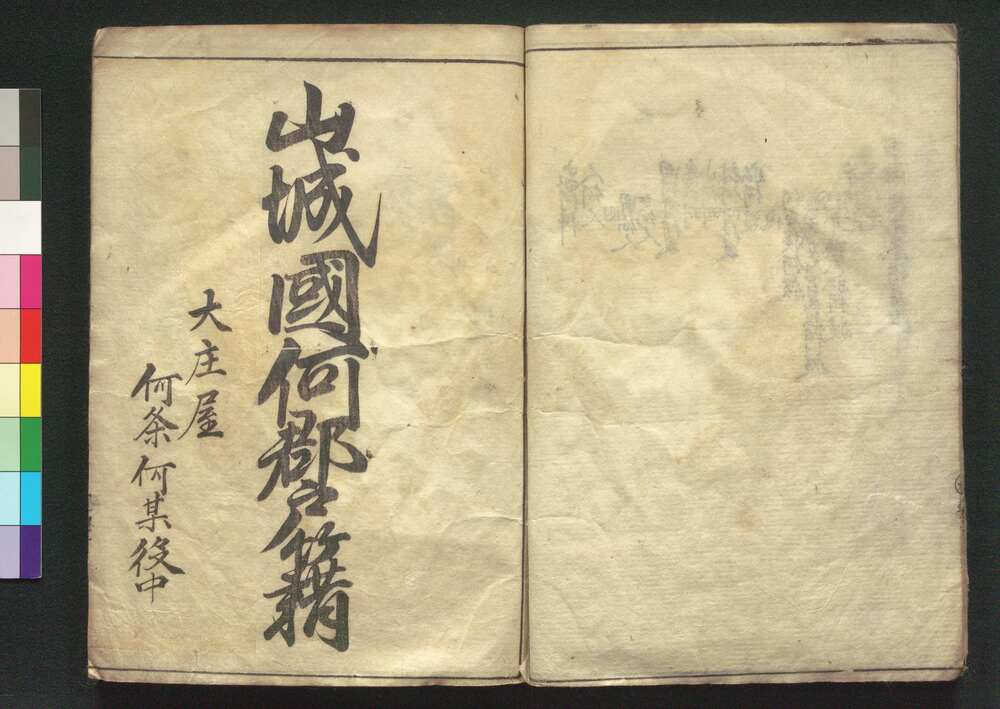 山城國何郡戸籍
大庄屋
何条何某役中